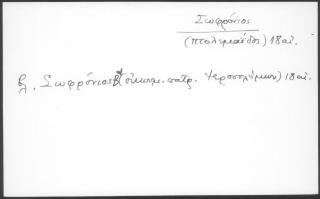 Σωφρόνιος
(Πτολεμαΐδος) 18 αἰ.
βλ. Σωφρόνιος Β' (οἰκουμ. πατρ. Ἱεροσολύμων) 18 αἰ.